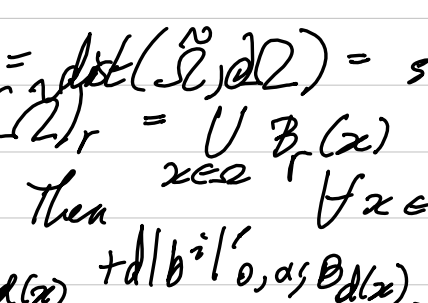 = dist(Ω̃, ∂Ω) = s
Ω̂)_r = ⋃_{x∈Ω} B_r(x)
Then ∀x ∈
d(x) + d|b^i|'_{0,α; B_{d(x)}}